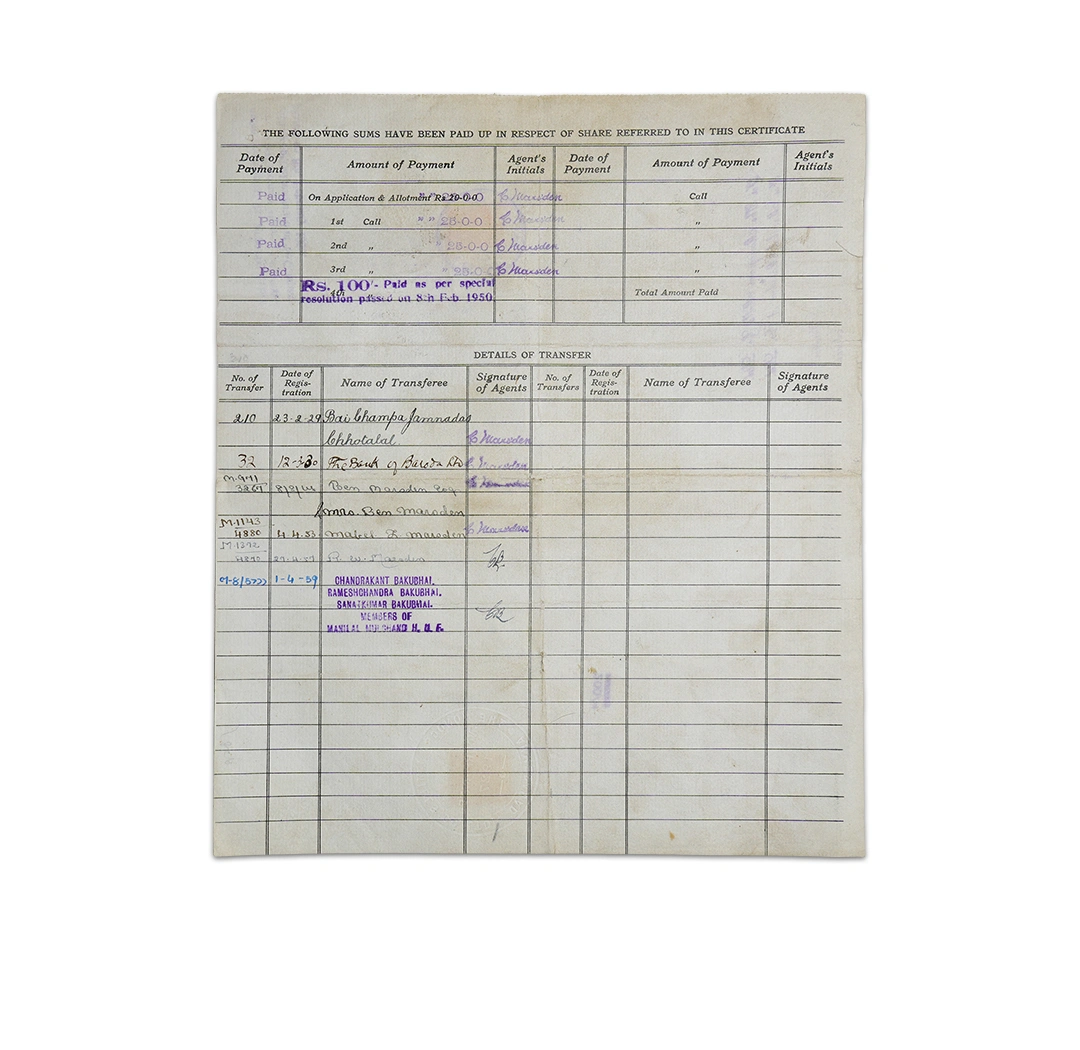 THE FOLLOWING SUMS HAVE BEEN PAID UP IN RESPECT OF SHARE REFERRED TO IN THIS CERTIFICATE
Date of Payment Amount of Payment Agent's Initials Date of Payment Amount of Payment Agent's Initials
Paid On Application & Allotment Rs 20-0-0 C Marsden Call
Paid 1st Call " " 25-0-0 C Marsden "
Paid 2nd " " 25-0-0 C Marsden "
Paid 3rd " " 25-0-0 C Marsden "
Rs. 100/- Paid as per special
4th Total Amount Paid
resolution passed on 8th Feb. 1950
DETAILS OF TRANSFER
No. of Transfer Date of Regis-tration Name of Transferee Signature of Agents No. of Transfers Date of Regis-tration Name of Transferee Signature of Agents
210 23-2-29 Bai Champa Jamnadas
Chhotalal C Marsden
32 12-3-30 The Bank of Baroda Ltd C. Marsden
Ben Marsden Esq
Mrs. Ben Marsden
M.1143
4880 4.4.53 Mabel Marsden C Marsden
Marsden
1-4-59 CHANDRAKANT BAKUBHAI.
RAMESHCHANDRA BAKUBHAI.
SANATKUMAR BAKUBHAI.
MEMBERS OF
MANILAL MULCHAND H. U. F.